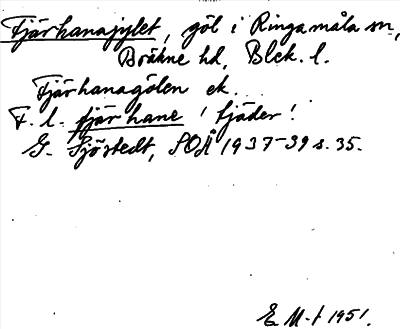 Tjärhanajylet, göl i Ringamåla sn,
Bräkne hd, Blek. l.
Tjärhanagölen ek.
F. l. fjärhane 'tjäder'.
G. Sjöstedt, SOÅ 1937-39 s. 35.
E M-t 1951.